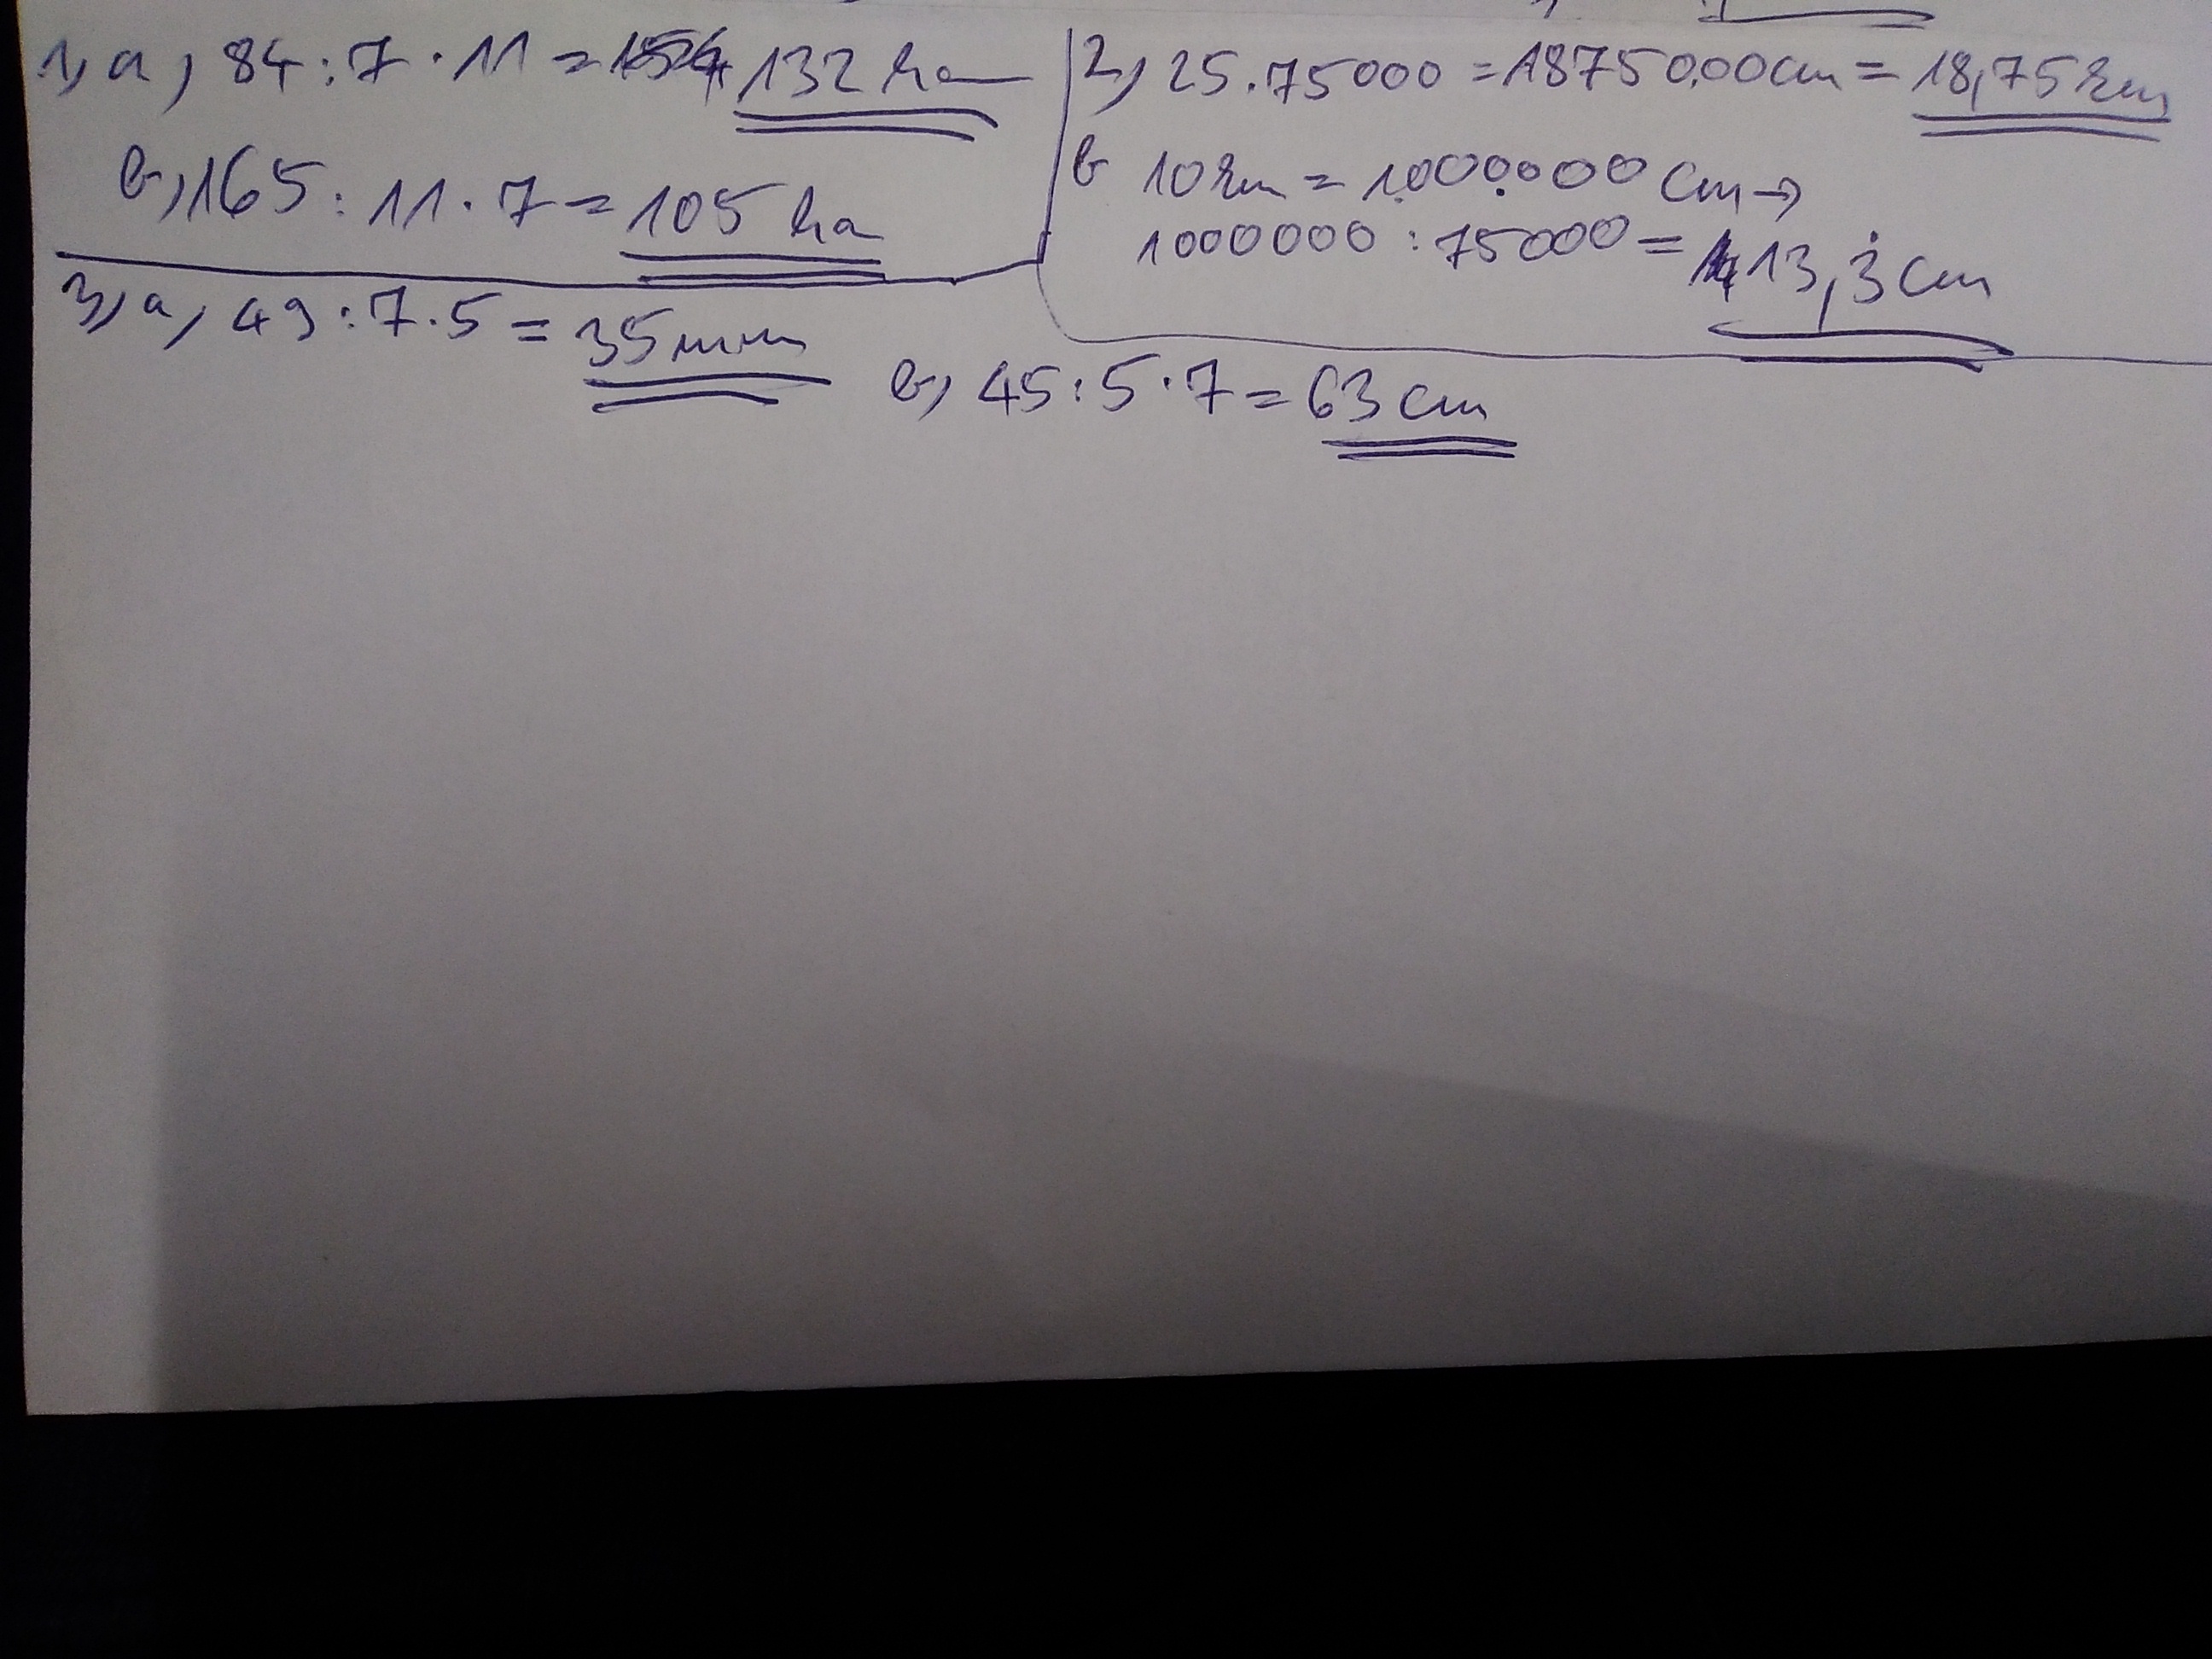 1, a, 84 : 7 · 11 = 132 ha
b, 165 : 11 · 7 = 105 ha
2, 25 · 75000 = 18750.00 cm = 18,75 km
b 10 km = 1.000.000 cm →
1000000 : 75000 = 13,3̇ cm
3, a, 49 : 7 · 5 = 35 mm
b, 45 : 5 · 7 = 63 cm